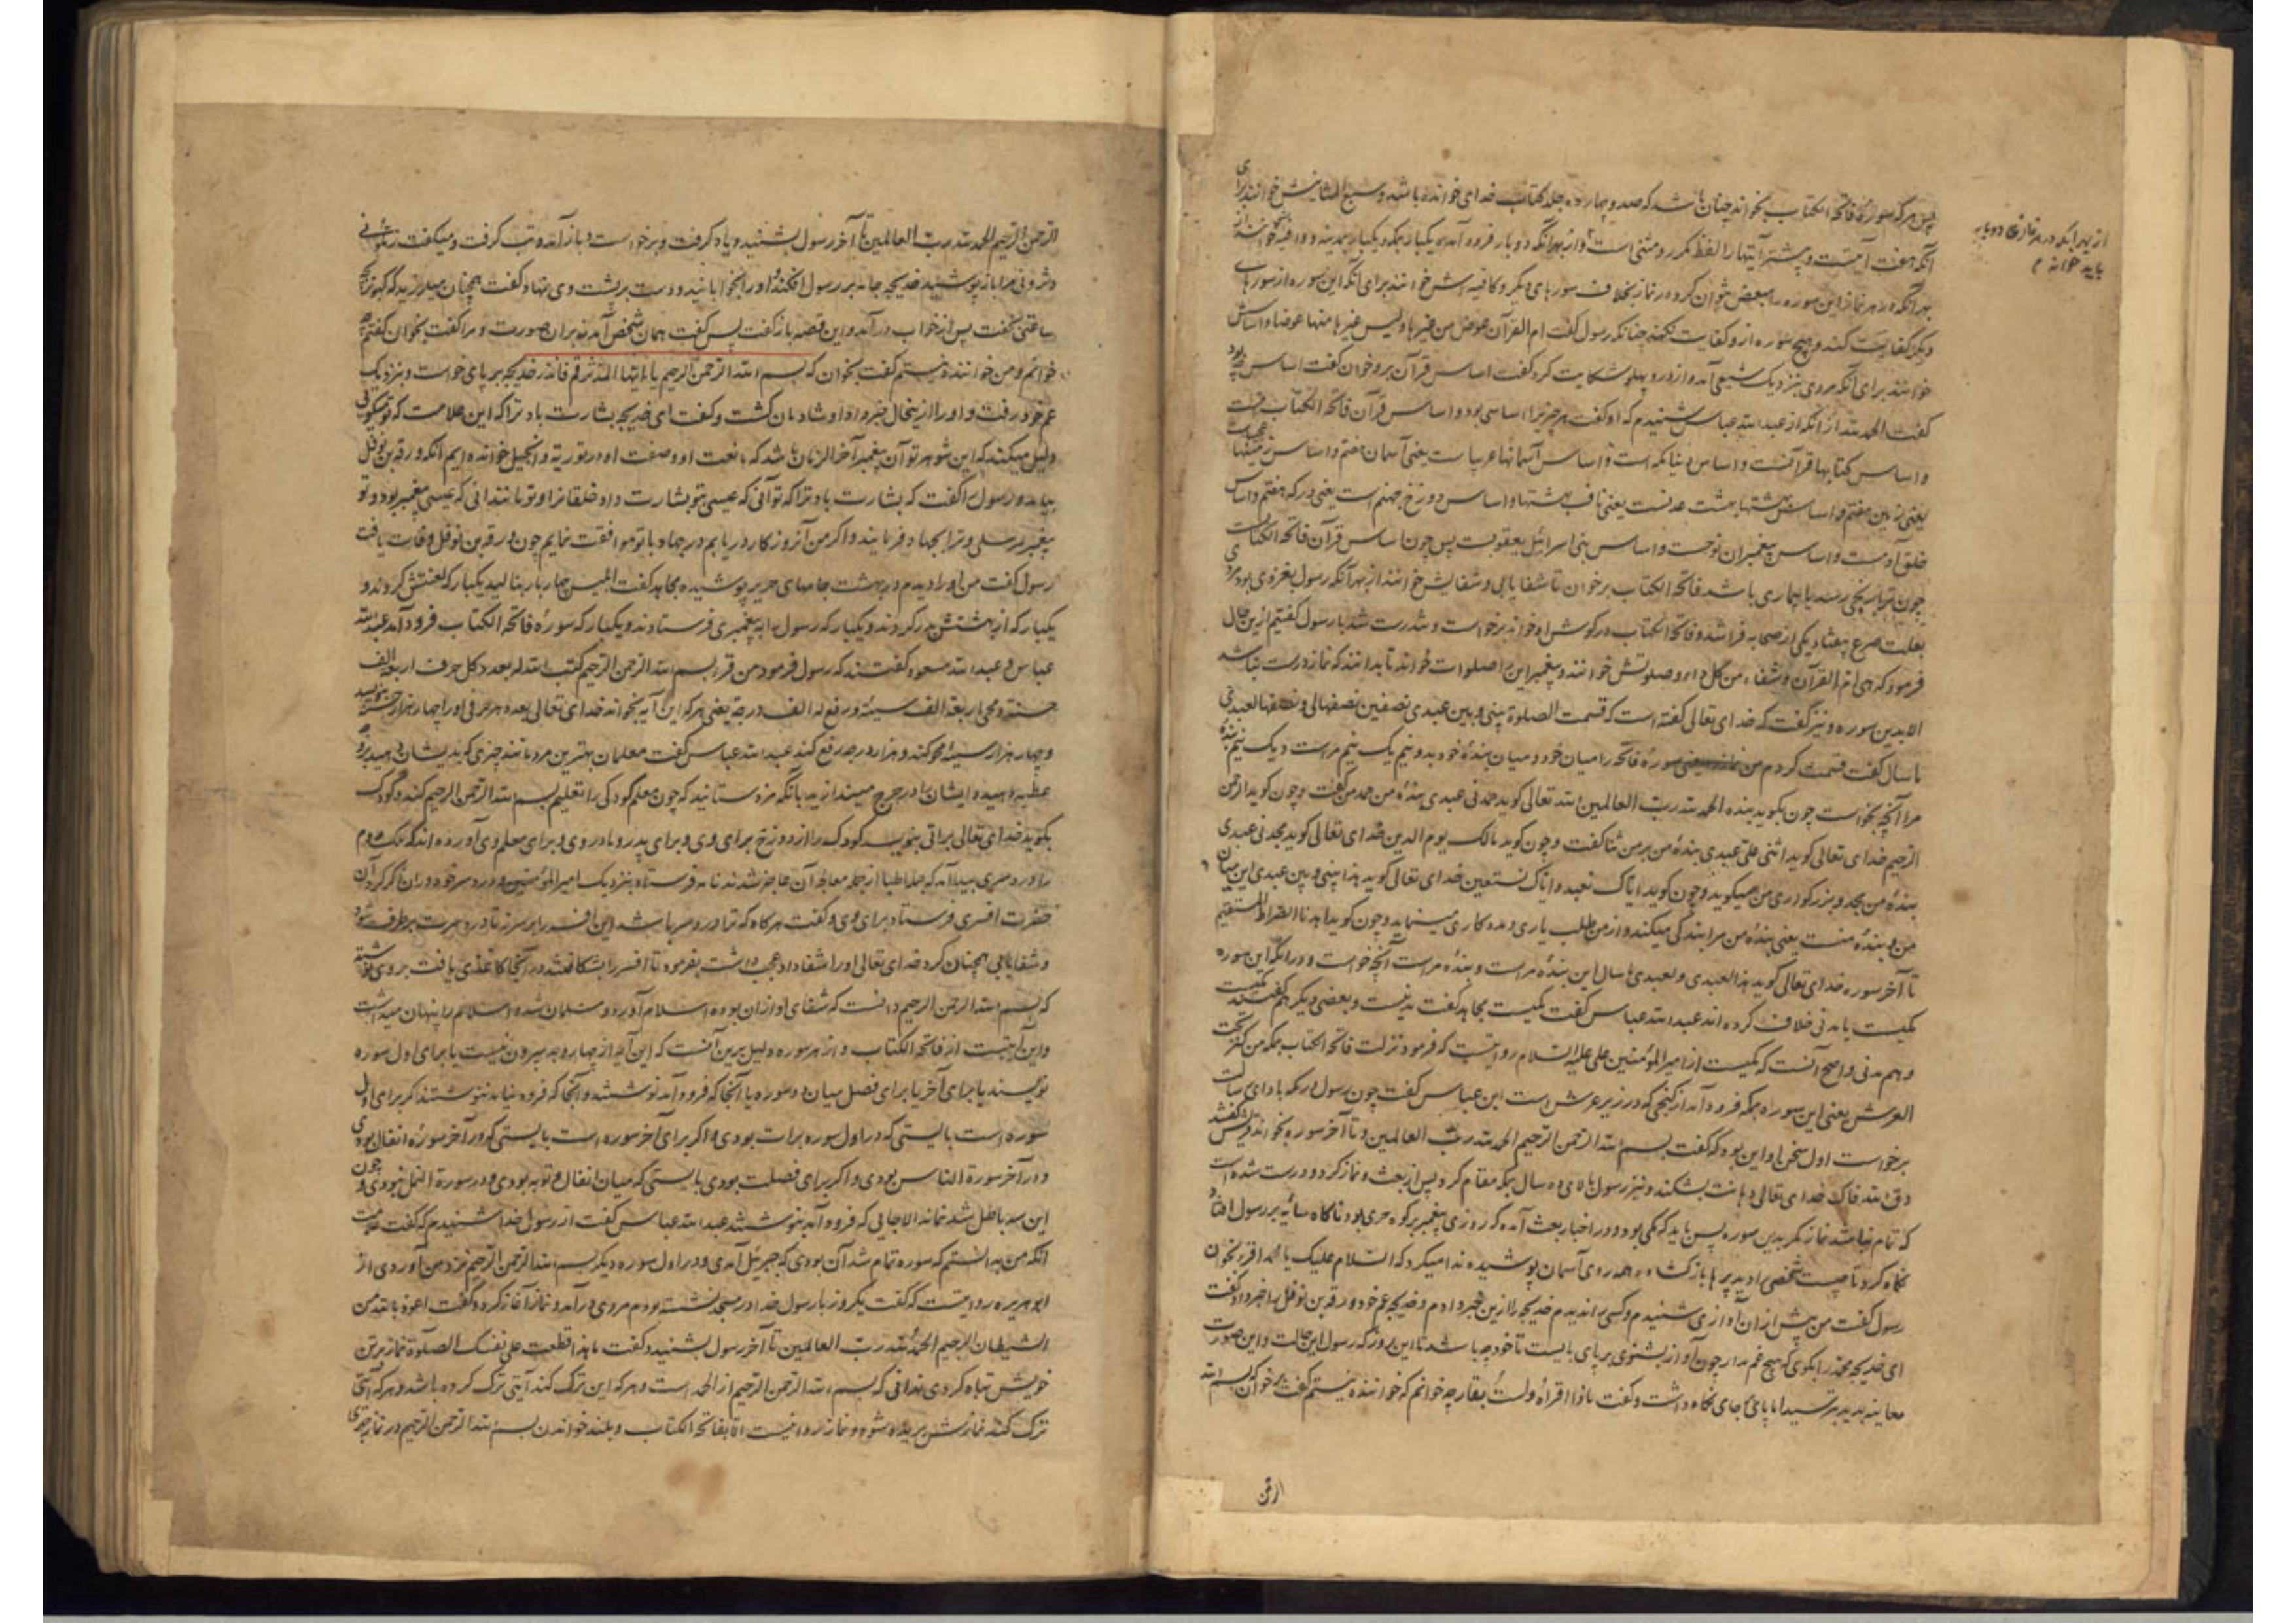 پس هرکه سورهٔ فاتحه الکتاب بخواند چنان باشد که صد و چهارده جلد کتاب خدای خوانده باشد و سبع المثانیش خوانند برای
آنکه هفت آیتست و بیشتر آیتها را لفظ مکرر و مثنی است و از بهر آنکه دو بار فرود آمد یکبار بمکه و یکبار بمدینه و وافیه خوانند از
بهر آنکه در هر نماز این سوره را تبعیض نتوان کرد در نماز بخلاف سورهای دیگر و کافیه اش خوانند برای آنکه این سوره از سورهای
دیگر کفایت کند و هیچ سوره ازو کفایت نکند چنانکه رسول گفت ام القرآن عوض من غیرها و لیس غیرها منها عوضا و اساسش
خوانند برای آنکه مردی بنزدیک شعبی آمد و از درد پهلو شکایت کرد گفت اساس قرآن برو خوان گفت اساس چه بود
گفت الحمد لله از آنکه از عبد الله عباس شنیدم که او گفت هر چیز را اساسی بود و اساس قرآن فاتحه الکتابست
و اساس کتابها قرآنست و اساس دنیا مکه است و اساس آسمانها عریباست یعنی آسمان هفتم و اساس زمینها عجیباست
یعنی زمین هفتم و اساس بهشتها بهشت عدنست یعنی ناف بهشتها و اساس دوزخ جهنم است یعنی درکه هفتم و اساس
خلق آدمست و اساس پیغمبران نوحست و اساس بنی اسرائیل یعقوبست پس چون اساس قرآن فاتحه الکتابست
چون ترا رنجی رسد یا بیماری باشد فاتحه الکتاب برخوان تا شفا یابی و شفایش خوانند از بهر آنکه رسول بغزوی بود مردی
بعلت صرع بیفتاد یکی از صحابه فرا شد و فاتحه الکتاب در گوش او خواند برخواست و تندرست شد با رسول گفتیم از این حال
فرمود که هی ام القرآن و شفاء من کل داء و صلوتش خوانند و پیغمبر این را صلوات خواند تا بدانند که نماز درست نباشد
الا بدین سوره و نیز گفت که خدای تعالی گفته است که قسمت الصلوة بینی و بین عبدی نصفین نصفها لی و نصفها لعبدی
ما سال گفت قسمت کردم من سورهٔ فاتحه را میان خود و میان بندهٔ خود بدو نیم یک نیم مراست و یک نیم بنده
مرا آنچه بخواست چون بگوید بنده الحمد لله رب العالمین الله تعالی گوید حمدنی عبدی بندهٔ من حمد من گفت و چون گوید الرحمن
الرحیم خدای تعالی گوید اثنی علی عبدی بندهٔ من بر من ثنا گفت و چون گوید مالک یوم الدین خدای تعالی گوید مجدنی عبدی
بندهٔ من مجد و بزرگواری من میگوید و چون گوید ایاک نعبد و ایاک نستعین خدای تعالی گوید هذا بینی و بین عبدی این میان
من و بندهٔ منست یعنی بندهٔ من مرا بندگی میکند و از من طلب یاری و مددکاری مینماید و چون گوید اهدنا الصراط المستقیم
تا آخر سوره خدای تعالی گوید هذا لعبدی و لعبدی ما سال این بندهٔ مراست و بندهٔ مراست آنچه خواست و در آنکه این سوره
مکیست یا مدنی خلاف کرده اند عبد الله عباس گفت مکیست مجاهد گفت مدنیست و بعضی دیگر هم گفتند مکیست
و هم مدنی و اصح آنست که مکیست از امیر المؤمنین علی علیه السلام روایتست که فرمود نزلت فاتحه الکتاب بمکه من کنز تحت
العرش یعنی این سوره بمکه فرود آمد از گنجی که در زیر عرش است ابن عباس گفت چون رسول در مکه بادای رسالت
برخواست اول سخن او این بود که گفت بسم الله الرحمن الرحیم الحمد لله رب العالمین و تا آخر سوره بخواند قریش گفتند
دق الله فاک خدای تعالی دهانت بشکند و نیز رسول بالای ده سال بمکه مقام کرد پس از بعث و نماز کرد و درست شده است
که تمام نباشد نماز مگر بدین سوره پس باید که مکی بود و در اخبار بعث آمده که روزی پیغمبر بر کوه حری بود ناگاه سایه بر رسول افتاد
نگاه کرد تا چیست شخصی را دید پرها باز گشاده و همه روی آسمان پوشیده ندا میکرد که السلام علیک یا محمد اقرء بخوان
رسول گفت من پیش از آن آوازی شنیدم و کسی را ندیدم خدیجه را ازین خبر دادم و خدیجه عم خود ورقه بن نوفل را خبر داد گفت
ای خدیجه محمد را بگوی که هیچ غم مدار چون آواز بشنوی بر پای بایست تا خود چه باشد تا این روز که رسول این حالت و این صورت
معاینه بدید بترسید اما پای بجای نگاه داشت و گفت ماذا اقرأ و لست بقار چه خوانم که خواننده نیستم گفت برخوان که بسم الله
الرحمن
از بهر آنکه در هر نمازی دو بار
باید خواند م
الرحمن الرحیم الحمد لله رب العالمین تا آخر رسول بشنید و یاد گرفت و برخواست و باز آمد و تب گرفت و میگفت زملونی
دثرونی مرا باز پوشید خدیجه جامه بر رسول افکند و او را بخوابانید و دست بر پشت وی نهاد و گفت همچنان میلرزید که کبوتر بچه
ساعتی بخفت پس از خواب درآمد و این قصه باز گفت پس گفت همان شخص آمد بر آن صورت و مرا گفت بخوان گفتم چه
خوانم و من خواننده نیستم گفت بخوان که بسم الله الرحمن الرحیم یا ایها المدثر قم فانذر خدیجه بر پای خواست و بنزدیک
عم خود رفت و او را ازینحال خبر داد او شادمان گشت و گفت ای خدیجه بشارت باد ترا که این علامت که تو میگوئی
دلیل میکند که این شوهر تو آن پیغمبر آخر الزمان باشد که ما نعت او و صفت او در توریة و انجیل خوانده ایم آنکه ورقه بن نوفل
بیامد و رسول را گفت که بشارت باد ترا که تو آنی که عیسی بتو بشارت داد خلقانرا و تو مانند آنی که عیسی پیغمبر بود و تو
پیغمبر مرسلی و ترا بجهاد فرمایند و اگر من آنروزگار دریابم در جهاد با تو موافقت نمایم چون ورقه بن نوفل وفات یافت
رسول گفت من او را دیدم در بهشت جامهای حریر پوشیده مجاهد گفت ابلیس چهار بار بنالید یکبار که لعنتش کردند و
یکبار که از بهشتش بدر کردند و یکبار که رسول را به پیغمبری فرستادند و یکبار که سورهٔ فاتحه الکتاب فرود آمد عبد الله
عباس و عبد الله مسعود گفتند که رسول فرمود من قرأ بسم الله الرحمن الرحیم کتب الله له بعدد کل حرف اربعة الف
حسنة و محی اربعة الف سیئة و رفع له الف درجة یعنی هرکه این آیه بخواند خدای تعالی بعدد هر حرفی او را چهار هزار حسنه بنویسد
و چهار هزار سیئه محو کند و هزار درجه رفع کند عبد الله عباس گفت معلمان بهترین مردمانند چیزی که بدیشان دهید بر وجه
عطیه دهید و ایشان را در حرج میندازید بآنکه مزد ستانید که چون معلم کودکی را تعلیم بسم الله الرحمن الرحیم کند و کودک
بگوید خدای تعالی براتی بنویسد کودک را از دوزخ برای وی و برای پدر و مادر وی و برای معلم وی آورده اند که ملک روم
را درد سری پیدا آمد که جمله اطبا از جمله معالجه آن عاجز شدند نامه فرستاد بنزدیک امیر المؤمنین و درد سر خود در آن ذکر کرد آن
حضرت افسری فرستاد برای وی و گفت هرگاه که ترا درد سر باشد این افسر را بر سر نه تا درد سرت برطرف شود
و شفا یابی همچنان کرد خدای تعالی او را شفا داد عجب داشت بفرمود تا افسر را بشکافتند در آنجا کاغذی یافت بر وی نوشته
که بسم الله الرحمن الرحیم دانست که شفای او از آن بوده اسلام آورد و مسلمان شد و اسلام را پنهان میداشت
و این آیتیست از فاتحه الکتاب و از هر سوره دلیل برین آنست که این آیه از چهار وجه بیرون نیست یا برای اول سوره
نویسند یا برای آخر یا برای فصل میان دو سوره یا آنجا که فرود آمد نوشتند و آنجا که فرود نیامد ننوشتند اگر برای اول
سوره است بایستی که در اول سوره برات بودی و اگر برای آخر سوره است بایستی که در آخر سورهٔ انفال بودی
و در آخر سورة الناس بودی و اگر برای فصلت بودی بایستی که میان انفال و توبه بودی و در سورة النمل نبودی و چون
این سه باطل شد نماند الا جایی که فرود آمد بنوشتند عبد الله عباس گفت از رسول خدا شنیدم که گفت علامت
آنکه من بدانستم که سوره تمام شد آن بودی که جبرئیل آمدی و در اول سوره دیگر بسم الله الرحمن الرحیم نزد من آوردی از
ابو هریره روایتست که گفت یکروز با رسول خدا در مسجد نشسته بودم مردی درآمد و نماز آغاز کرد و گفت اعوذ بالله من
الشیطان الرجیم الحمد لله رب العالمین تا آخر رسول بشنید و گفت یا هذا قطعت علی نفسک الصلوة نماز بر تن
خویش تباه کردی ندانی که بسم الله الرحمن الرحیم از الحمد است و هرکه این ترک کند آیتی ترک کرده باشد و هرکه آیتی
ترک کند نمازش بریده شود و نماز روا نیست الا بفاتحه الکتاب و بلند خواندن بسم الله الرحمن الرحیم در نماز جهری